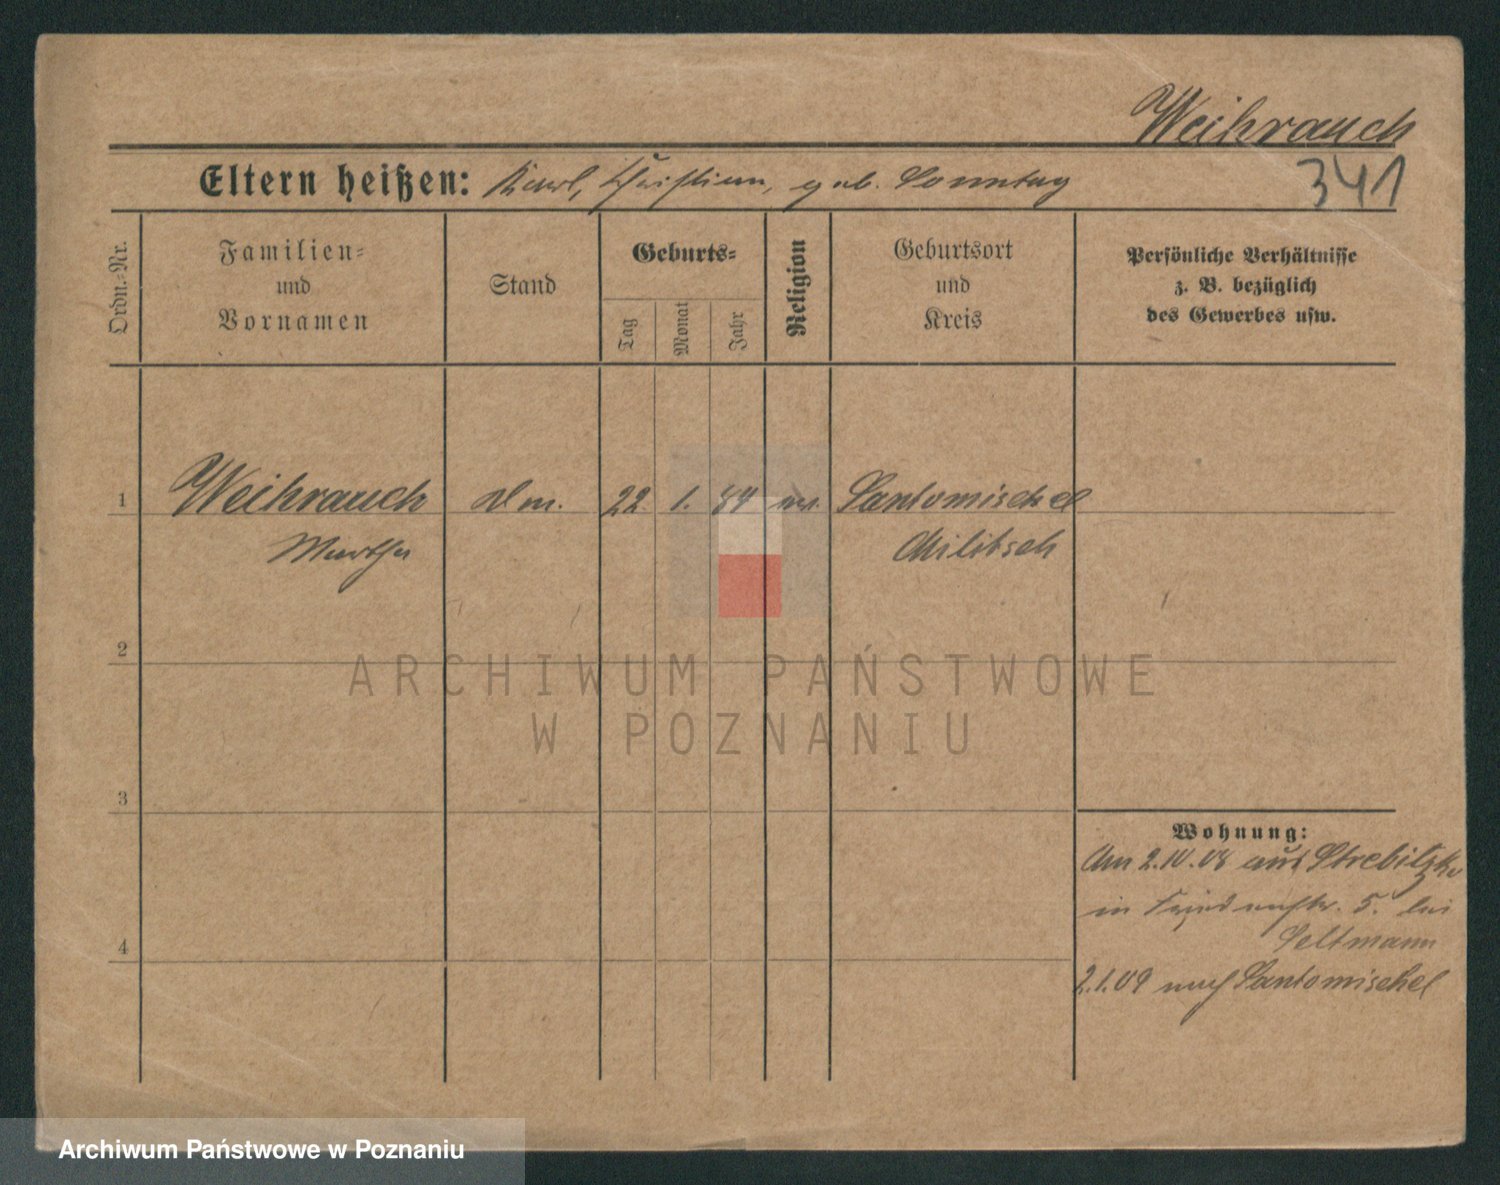 Weihrauch
Eltern heißen: Karl, Christian, geb. Sonntag
341
Ordn.-Nr.
Familien-
und
Vornamen
Stand
Geburts-
Tag
Monat
Jahr
Religion
Geburtsort
und
Kreis
Persönliche Verhältnisse
z. B. bezüglich
des Gewerbes usw.
1 Weihrauch 22. 1. 84 Santomischel
Martha Militsch
2
3
4
Wohnung:
Am 2.IV.08 aus
in 5. bei
Seltmann
2.1.09 nach Santomischel
ARCHIWUM PAŃSTWOWE
W POZNANIU
Archiwum Państwowe w Poznaniu